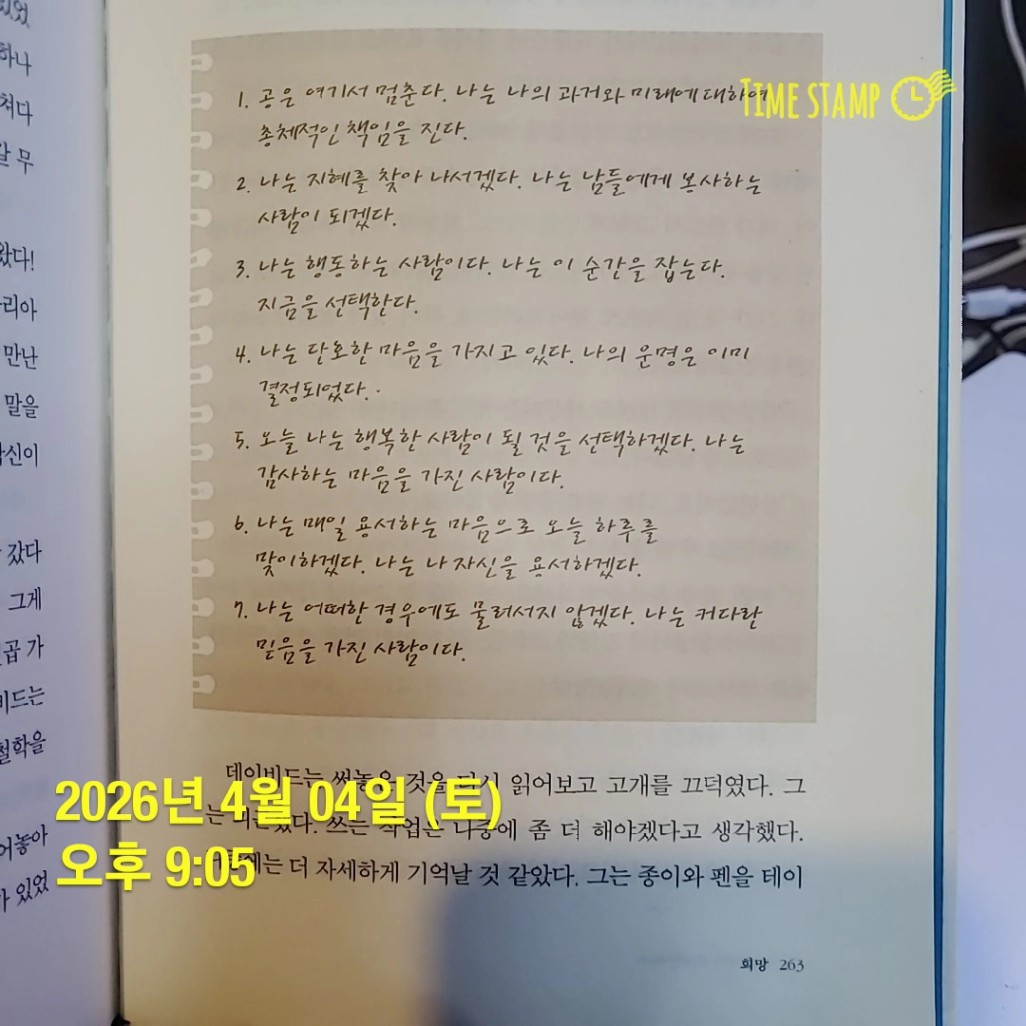 TIME STAMP
1. 공은 여기서 멈춘다. 나는 나의 과거와 미래에 대하여
총체적인 책임을 진다.
2. 나는 지혜를 찾아 나서겠다. 나는 남들에게 봉사하는
사람이 되겠다.
3. 나는 행동하는 사람이다. 나는 이 순간을 잡는다.
지금을 선택한다.
4. 나는 단호한 마음을 가지고 있다. 나의 운명은 이미
결정되었다.
5. 오늘 나는 행복한 사람이 될 것을 선택하겠다. 나는
감사하는 마음을 가진 사람이다.
6. 나는 매일 용서하는 마음으로 오늘 하루를
맞이하겠다. 나는 나 자신을 용서하겠다.
7. 나는 어떠한 경우에도 물러서지 않겠다. 나는 커다란
믿음을 가진 사람이다.
데이비드는 써놓은 것을 다시 읽어보고 고개를 끄덕였다. 그
쓰는 작업은 나중에 좀 더 해야겠다고 생각했다.
더 자세하게 기억날 것 같았다. 그는 종이와 펜을 테이
희망 263
2026년 4월 04일 (토)
오후 9:05
하나
왔다!
만난
말을
갔다
그게
있었